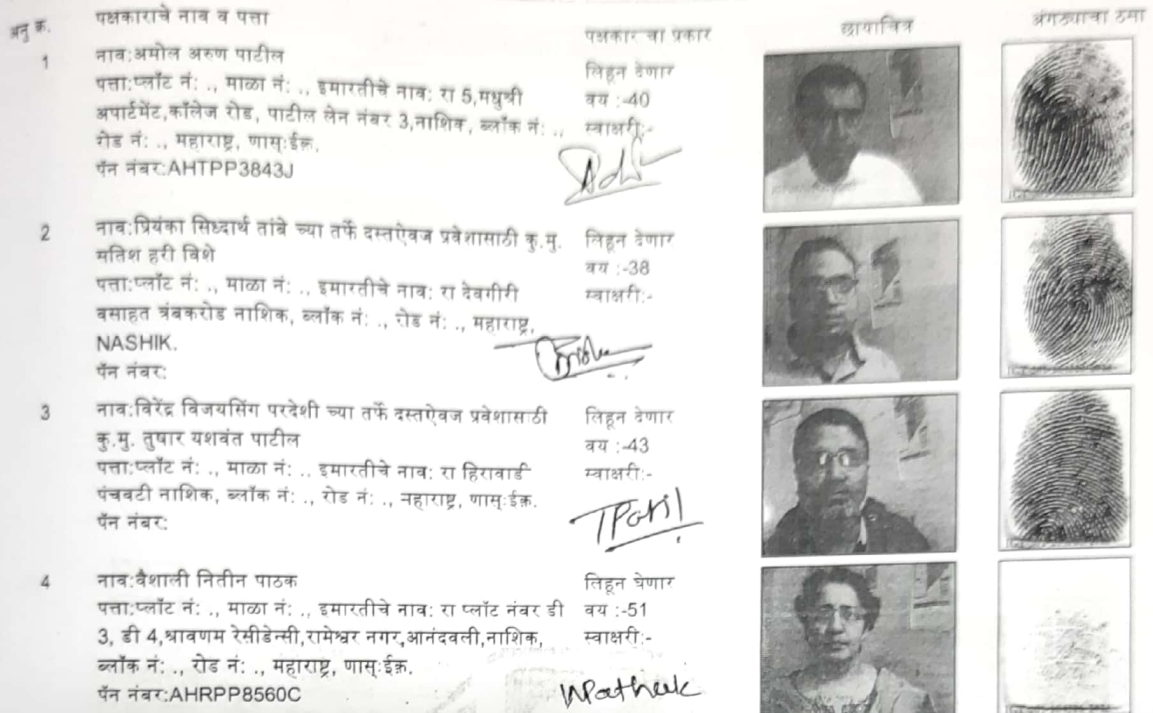 अनु क्र. पक्षकाराचे नाव व पत्ता पक्षकार चा प्रकार छायाचित्र अंगठ्याचा ठसा
1 नाव:अमोल अरुण पाटील
पत्ता:प्लॉट नं: ., माळा नं: ., इमारतीचे नाव: रा 5,मधुश्री
अपार्टमेंट,कॉलेज रोड, पाटील लेन नंबर 3,नाशिक, ब्लॉक नं: .,
रोड नं: ., महाराष्ट्र, णास्:ईक़.
पॅन नंबर:AHTPP3843J
लिहून देणार
वय :-40
स्वाक्षरी:-
2 नाव:प्रियंका सिध्दार्थ तांबे च्या तर्फे दस्तऐवज प्रवेशासाठी कु.मु.
मतिश हरी विशे
पत्ता:प्लॉट नं: ., माळा नं: ., इमारतीचे नाव: रा देवगीरी
वसाहत त्रंबकरोड नाशिक, ब्लॉक नं: ., रोड नं: ., महाराष्ट्र,
NASHIK.
पॅन नंबर:
लिहून देणार
वय :-38
स्वाक्षरी:-
3 नाव:विरेंद्र विजयसिंग परदेशी च्या तर्फे दस्तऐवज प्रवेशासाठी
कु.मु. तुषार यशवंत पाटील
पत्ता:प्लॉट नं: ., माळा नं: ., इमारतीचे नाव: रा हिरावाडी
पंचवटी नाशिक, ब्लॉक नं: ., रोड नं: ., महाराष्ट्र, णास्:ईक़.
पॅन नंबर:
लिहून देणार
वय :-43
स्वाक्षरी:-
TPatil
4 नाव:वैशाली नितीन पाठक
पत्ता:प्लॉट नं: ., माळा नं: ., इमारतीचे नाव: रा प्लॉट नंबर डी
3, डी 4,श्रावणम रेसीडेन्सी,रामेश्वर नगर,आनंदवली,नाशिक,
ब्लॉक नं: ., रोड नं: ., महाराष्ट्र, णास्:ईक़.
पॅन नंबर:AHRPP8560C
लिहून घेणार
वय :-51
स्वाक्षरी:-